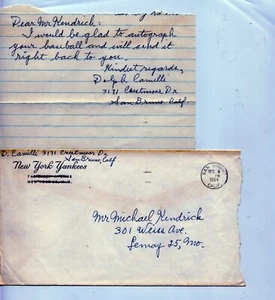 Dear Mr. Kendrick:
I would be glad to autograph
your baseball and will send it
right back to you.
Kindest regards,
Dolph Camilli
3171 Crestmoor Dr
San Bruno Calif.
D. Camilli 3171 Crestmoor Dr
San Bruno, Calif
New York Yankees
Mr Michael Kendrick
301 Weiss Ave.
Lemay 25, Mo.